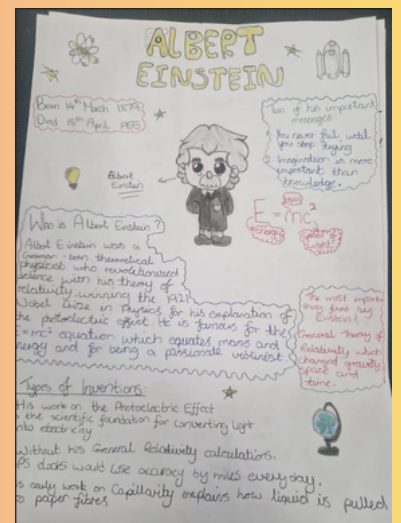 ALBERT
EINSTEIN
Born 14th March 1879
Died 18th April 1955
Two of his important
messages:
1. You never fail until
you stop trying
2. Imagination is more
important than
knowledge.
Albert
Einstein
E=mc²
Mass
Energy
Speed of
Light
Who is Albert Einstein?
Albert Einstein was a
German-born theoretical
physicist who revolutionised
science with his theory of
relativity, winning the 1921
Nobel Prize in Physics for his explanation of
the photoelectric effect. He is famous for the
E=mc² equation which equates mass and
energy and for being a passionate violinist
The most important
thing by
Einstein?
General Theory of
Relativity which
changed gravity
space and
time.
Types of Inventions:
His work on the Photoelectric Effect
is the scientific foundation for converting light
into electricity
Without his General Relativity calculations.
GPS clocks would lose accuracy by miles every day.
is early work on Capillarity explains how liquid is pulled
paper fibres